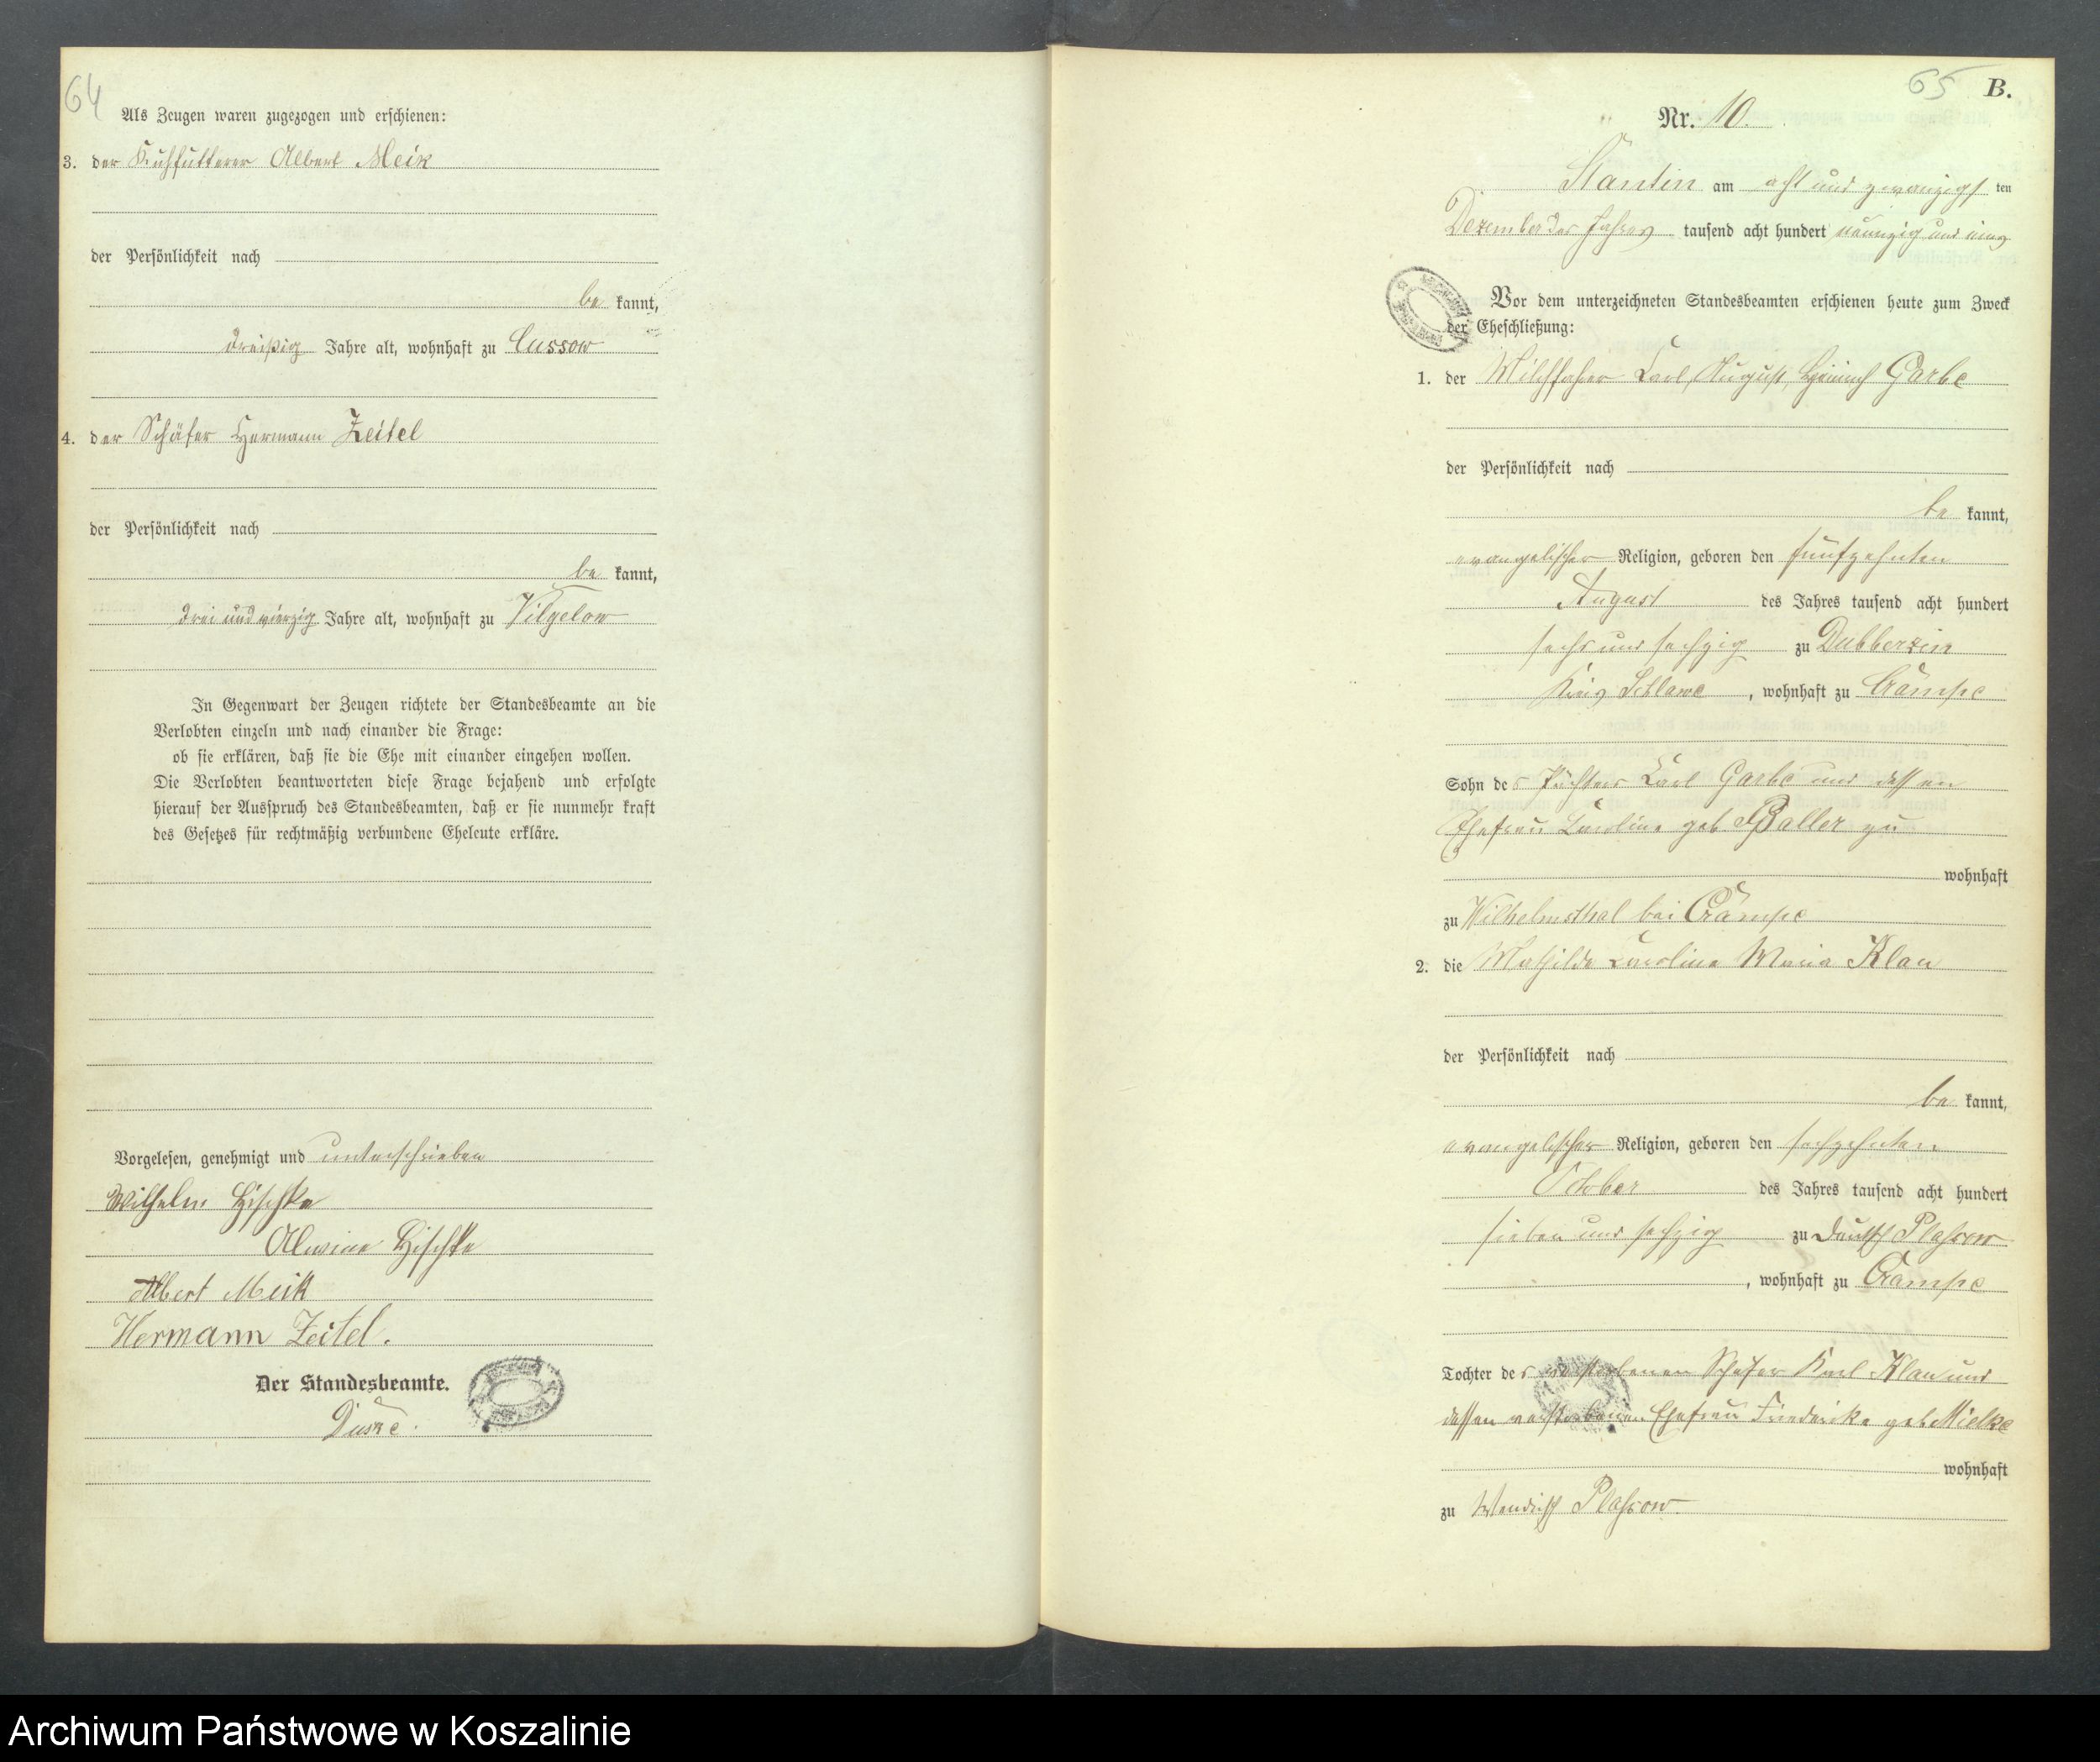 64
Als Zeugen waren zugezogen und erschienen:
3. der Kuhfütterer Albert Meik
der Persönlichkeit nach
be kannt,
dreißig Jahre alt, wohnhaft zu Cussow
4. der Schäfer Hermann Zeitel
der Persönlichkeit nach
be kannt,
drei und vierzig Jahre alt, wohnhaft zu Vilgelow
In Gegenwart der Zeugen richtete der Standesbeamte an die
Verlobten einzeln und nach einander die Frage:
ob sie erklären, daß sie die Ehe mit einander eingehen wollen.
Die Verlobten beantworteten diese Frage bejahend und erfolgte
hierauf der Ausspruch des Standesbeamten, daß er sie nunmehr kraft
des Gesetzes für rechtmäßig verbundene Eheleute erkläre.
Vorgelesen, genehmigt und unterschrieben
Wilhelm Hischke
Alwine Hischke
Albert Meik
Hermann Zeitel.
Der Standesbeamte.
65 B.
Nr. 10.
Stantin am acht und zwanzigs ten
Dezember des Jahres tausend acht hundert neunzig und eins
Vor dem unterzeichneten Standesbeamten erschienen heute zum Zweck
der Eheschließung:
1. der Milchfahrer Karl, August, Heinrich Garbe
der Persönlichkeit nach
be kannt,
evangelischer Religion, geboren den fünfzehnten
August des Jahres tausend acht hundert
sechs und sechzig zu Dubberzin
Kreis Schlawe, wohnhaft zu Crampe
Sohn des Pächters Karl Garbe und dessen
Ehefrau Karoline geb. Baller zu
wohnhaft
zu Wilhelmsthal bei Crampe
2. die Mathilde Karoline Maria Klau
der Persönlichkeit nach
be kannt,
evangelischer Religion, geboren den sechzehnten
October des Jahres tausend acht hundert
sieben und sechzig zu Deutsch Plassow
, wohnhaft zu Crampe
Tochter des verstorbenen Schäfer Karl Klau und
dessen verstorbenen Ehefrau Friederike geb. Mielke
wohnhaft
zu Wendisch Plassow
Archiwum Państwowe w Koszalinie